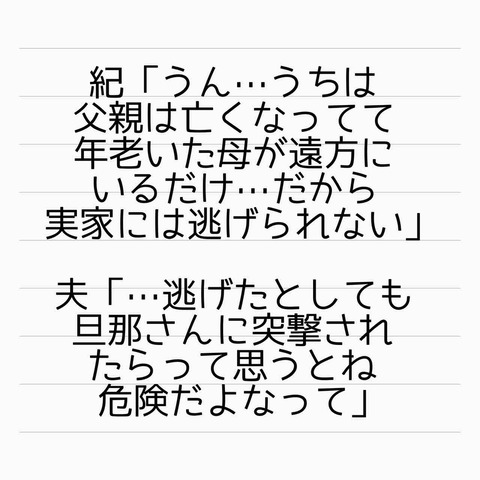 紀「うん…うちは
父親は亡くなってて
年老いた母が遠方に
いるだけ…だから
実家には逃げられない」
夫「…逃げたとしても
旦那さんに突撃され
たらって思うとね
危険だよなって」